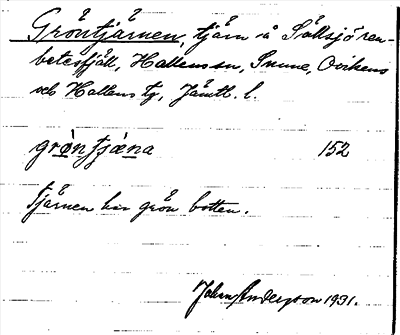 Gröntjärnen, tjärn å Sållsjö ren-
betesfjäll, Hallens sn, Sunne, Ovikens
och Hallens tg, Jämtl. l.
grǫ̀n tjæna 152
Tjärnen har grön botten.
Johan Anderson 1931.